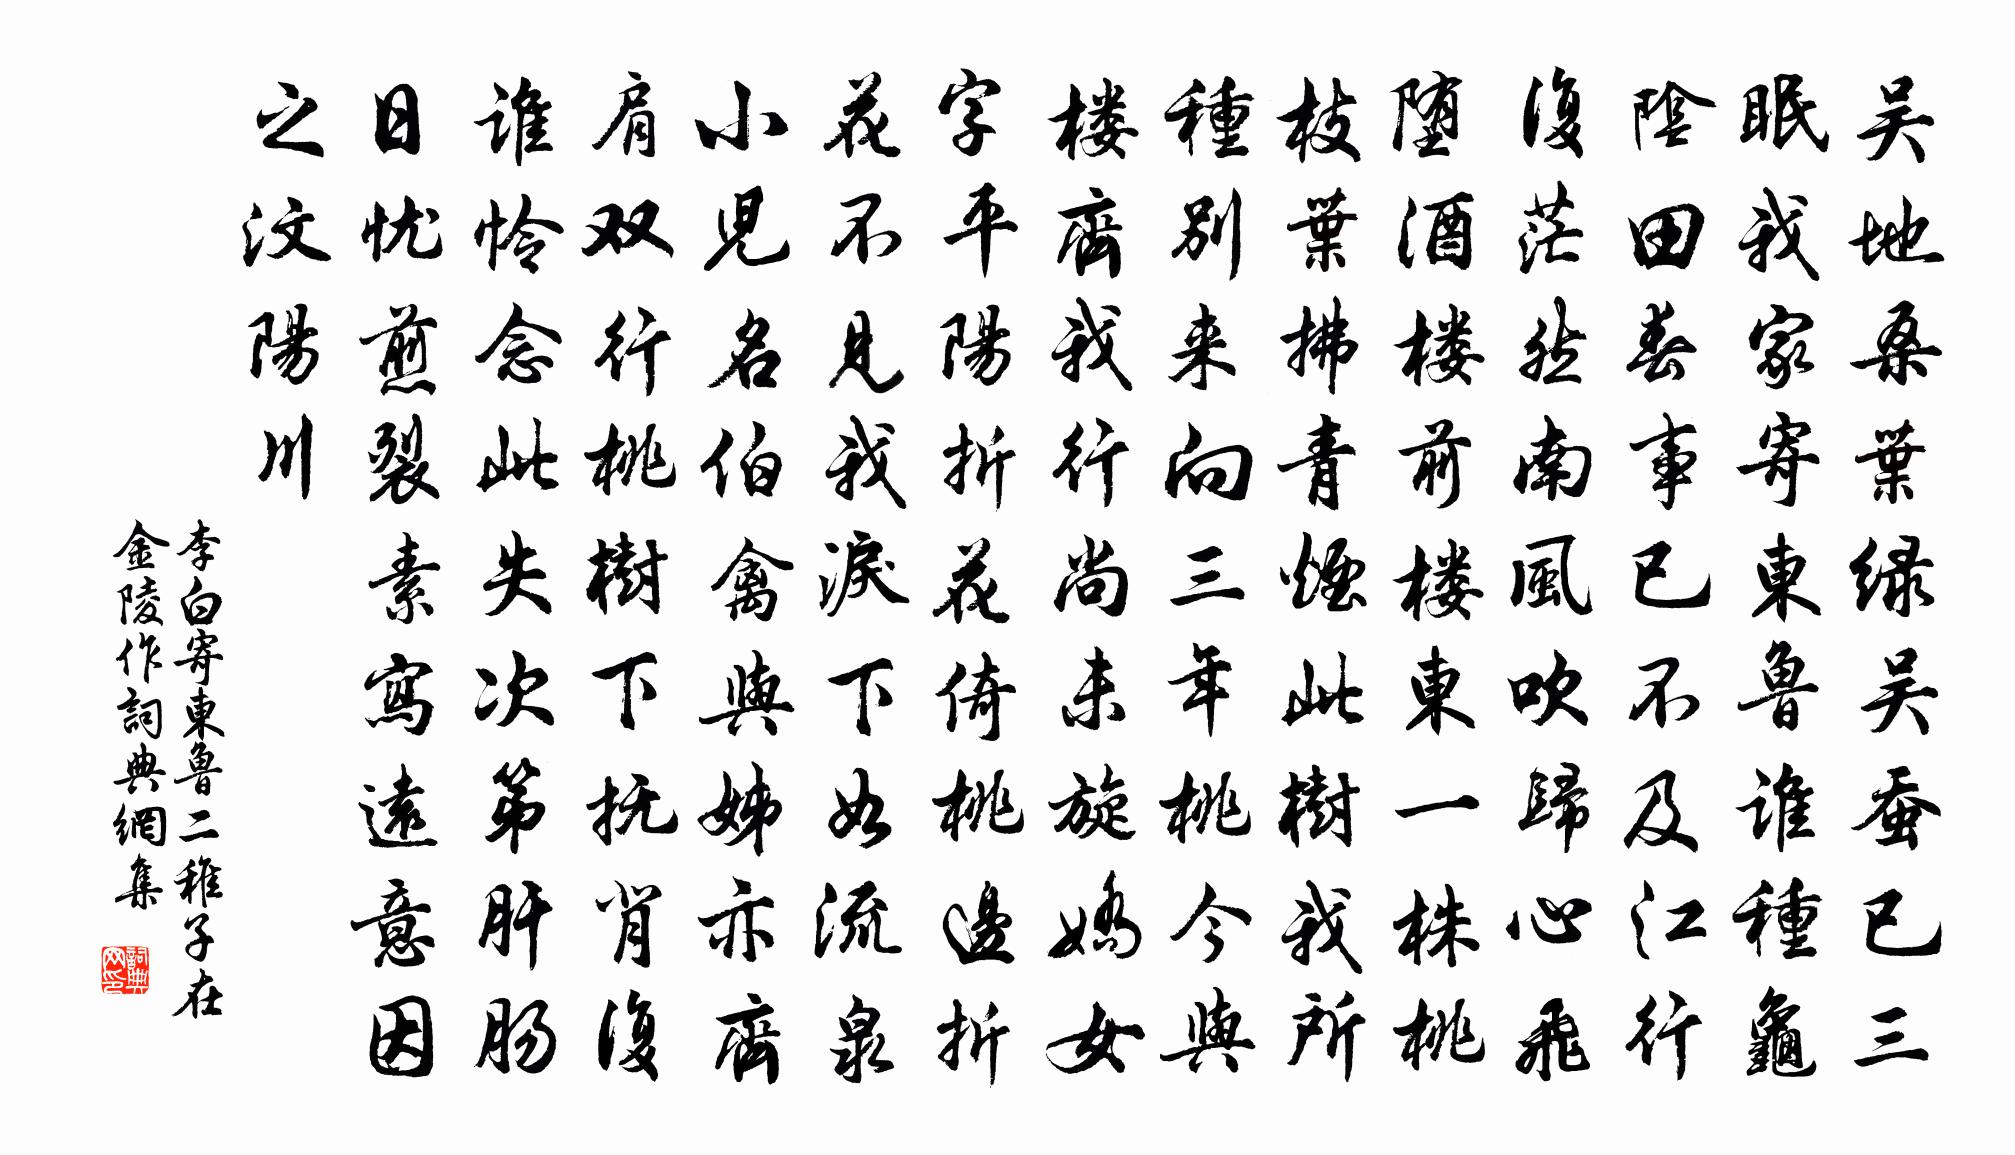 吴地桑葉绿吴蚕已三
眠我家寄東魯谁種龜
陰田春事已不及江行
復茫然南風吹歸心飛
堕酒楼前楼東一株桃
枝葉拂青煙此樹我所
種别来向三年桃今與
楼齊我行尚未旋嬌女
字平陽折花倚桃邊折
花不見我淚下如流泉
小児名伯禽與姊亦齊
肩双行桃樹下抚背復
谁怜念此失次第肝肠
日忧煎裂素寫遠意因
之汶陽川
李白寄東魯二稚子在
金陵作詞典網集
詞典网印